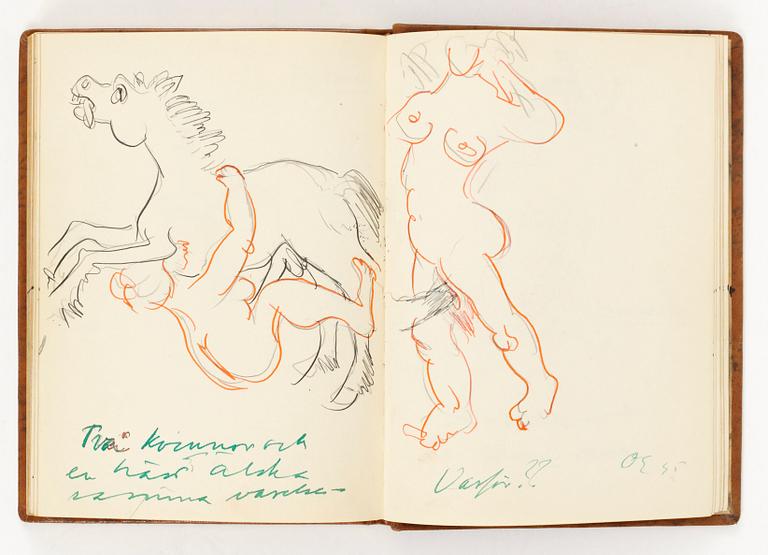 Två kvinnor och
en häst älska
samma varelse—
Varför??
OE 45